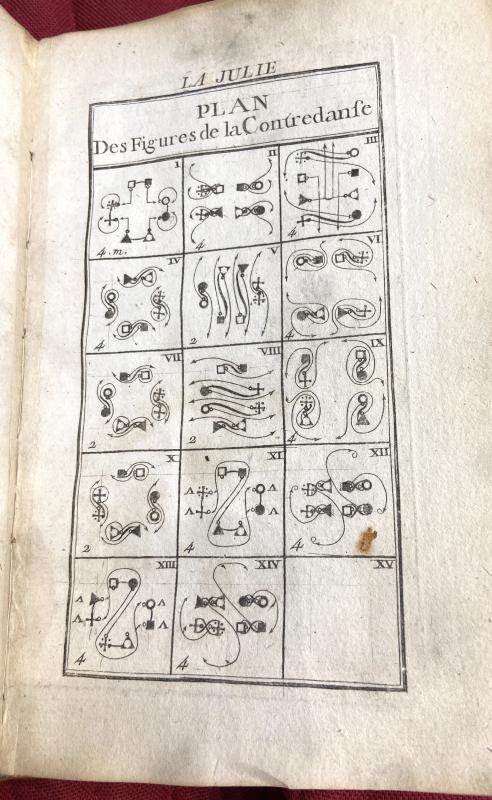 LA JULIE
PLAN
Des Figures de la Contredanse
I
4.m.
II
4
III
4
IV
4
V
2
VI
4
VII
2
VIII
2
IX
4
X
2
XI
Λ Λ
Λ Λ
4
XII
4
XIII
Λ Λ
Λ Λ
4
XIV
4
XV